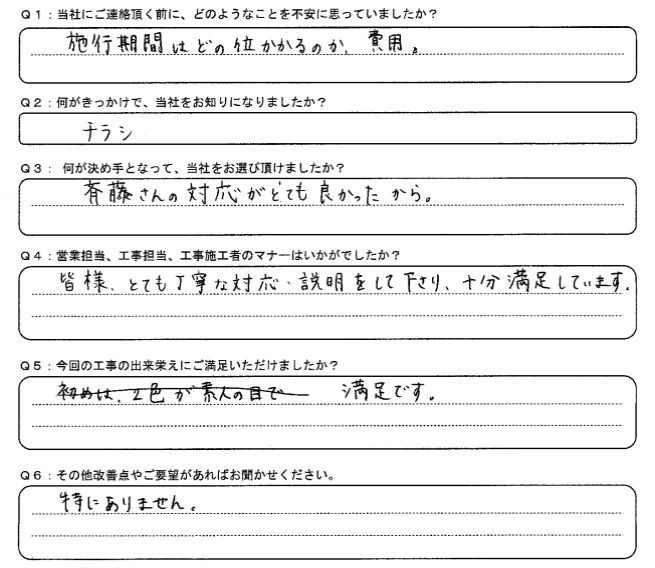 Q1：当社にご連絡頂く前に、どのようなことを不安に思っていましたか？
施行期間はどの位かかるのか、費用。
Q2：何がきっかけで、当社をお知りになりましたか？
チラシ
Q3： 何が決め手となって、当社をお選び頂けましたか？
斉藤さんの対応がとても良かったから。
Q4：営業担当、工事担当、工事施工者のマナーはいかがでしたか？
皆様、とても丁寧な対応・説明をして下さり、十分満足しています。
Q5：今回の工事の出来栄えにご満足いただけましたか？
初めは、2色が素人の目で 満足です。
Q6：その他改善点やご要望があればお聞かせください。
特にありません。